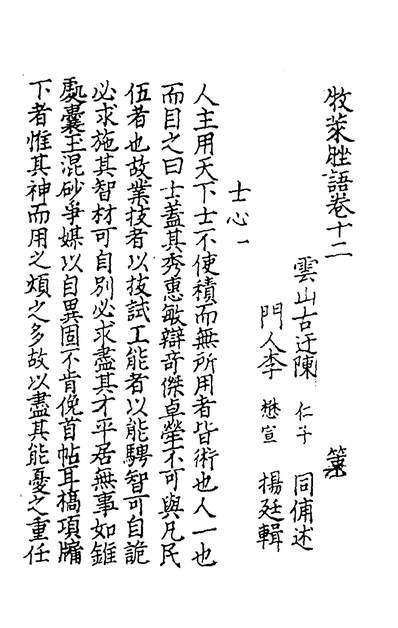 牧萊脞語卷十二
雲山古迂陳 仁子 同俌述
門人李 懋宣 揚廷輯
士心一
人主用天下士不使積而無所用者皆術也人一也
而目之曰士蓋其秀惠敏辯奇傑卓犖不可與凡民
伍者也故業技者以技試工能者以能騁智可自詭
必求施其智材可自別必求盡其才平居無事如錐
處囊玉混砂爭媒以自異固不肯俛首帖耳槁項牖
下者惟其神而用之煩之多故以盡其能憂之重任